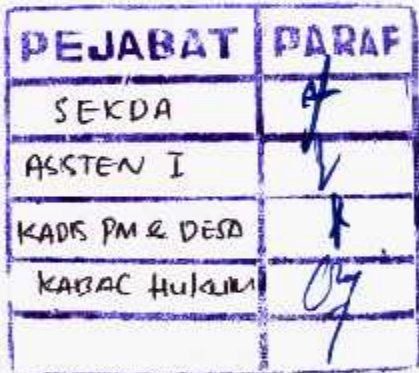 PEJABAT PARAF
SEKDA
ASSTEN I
KADIS PM & DESA
KABAG Hukum